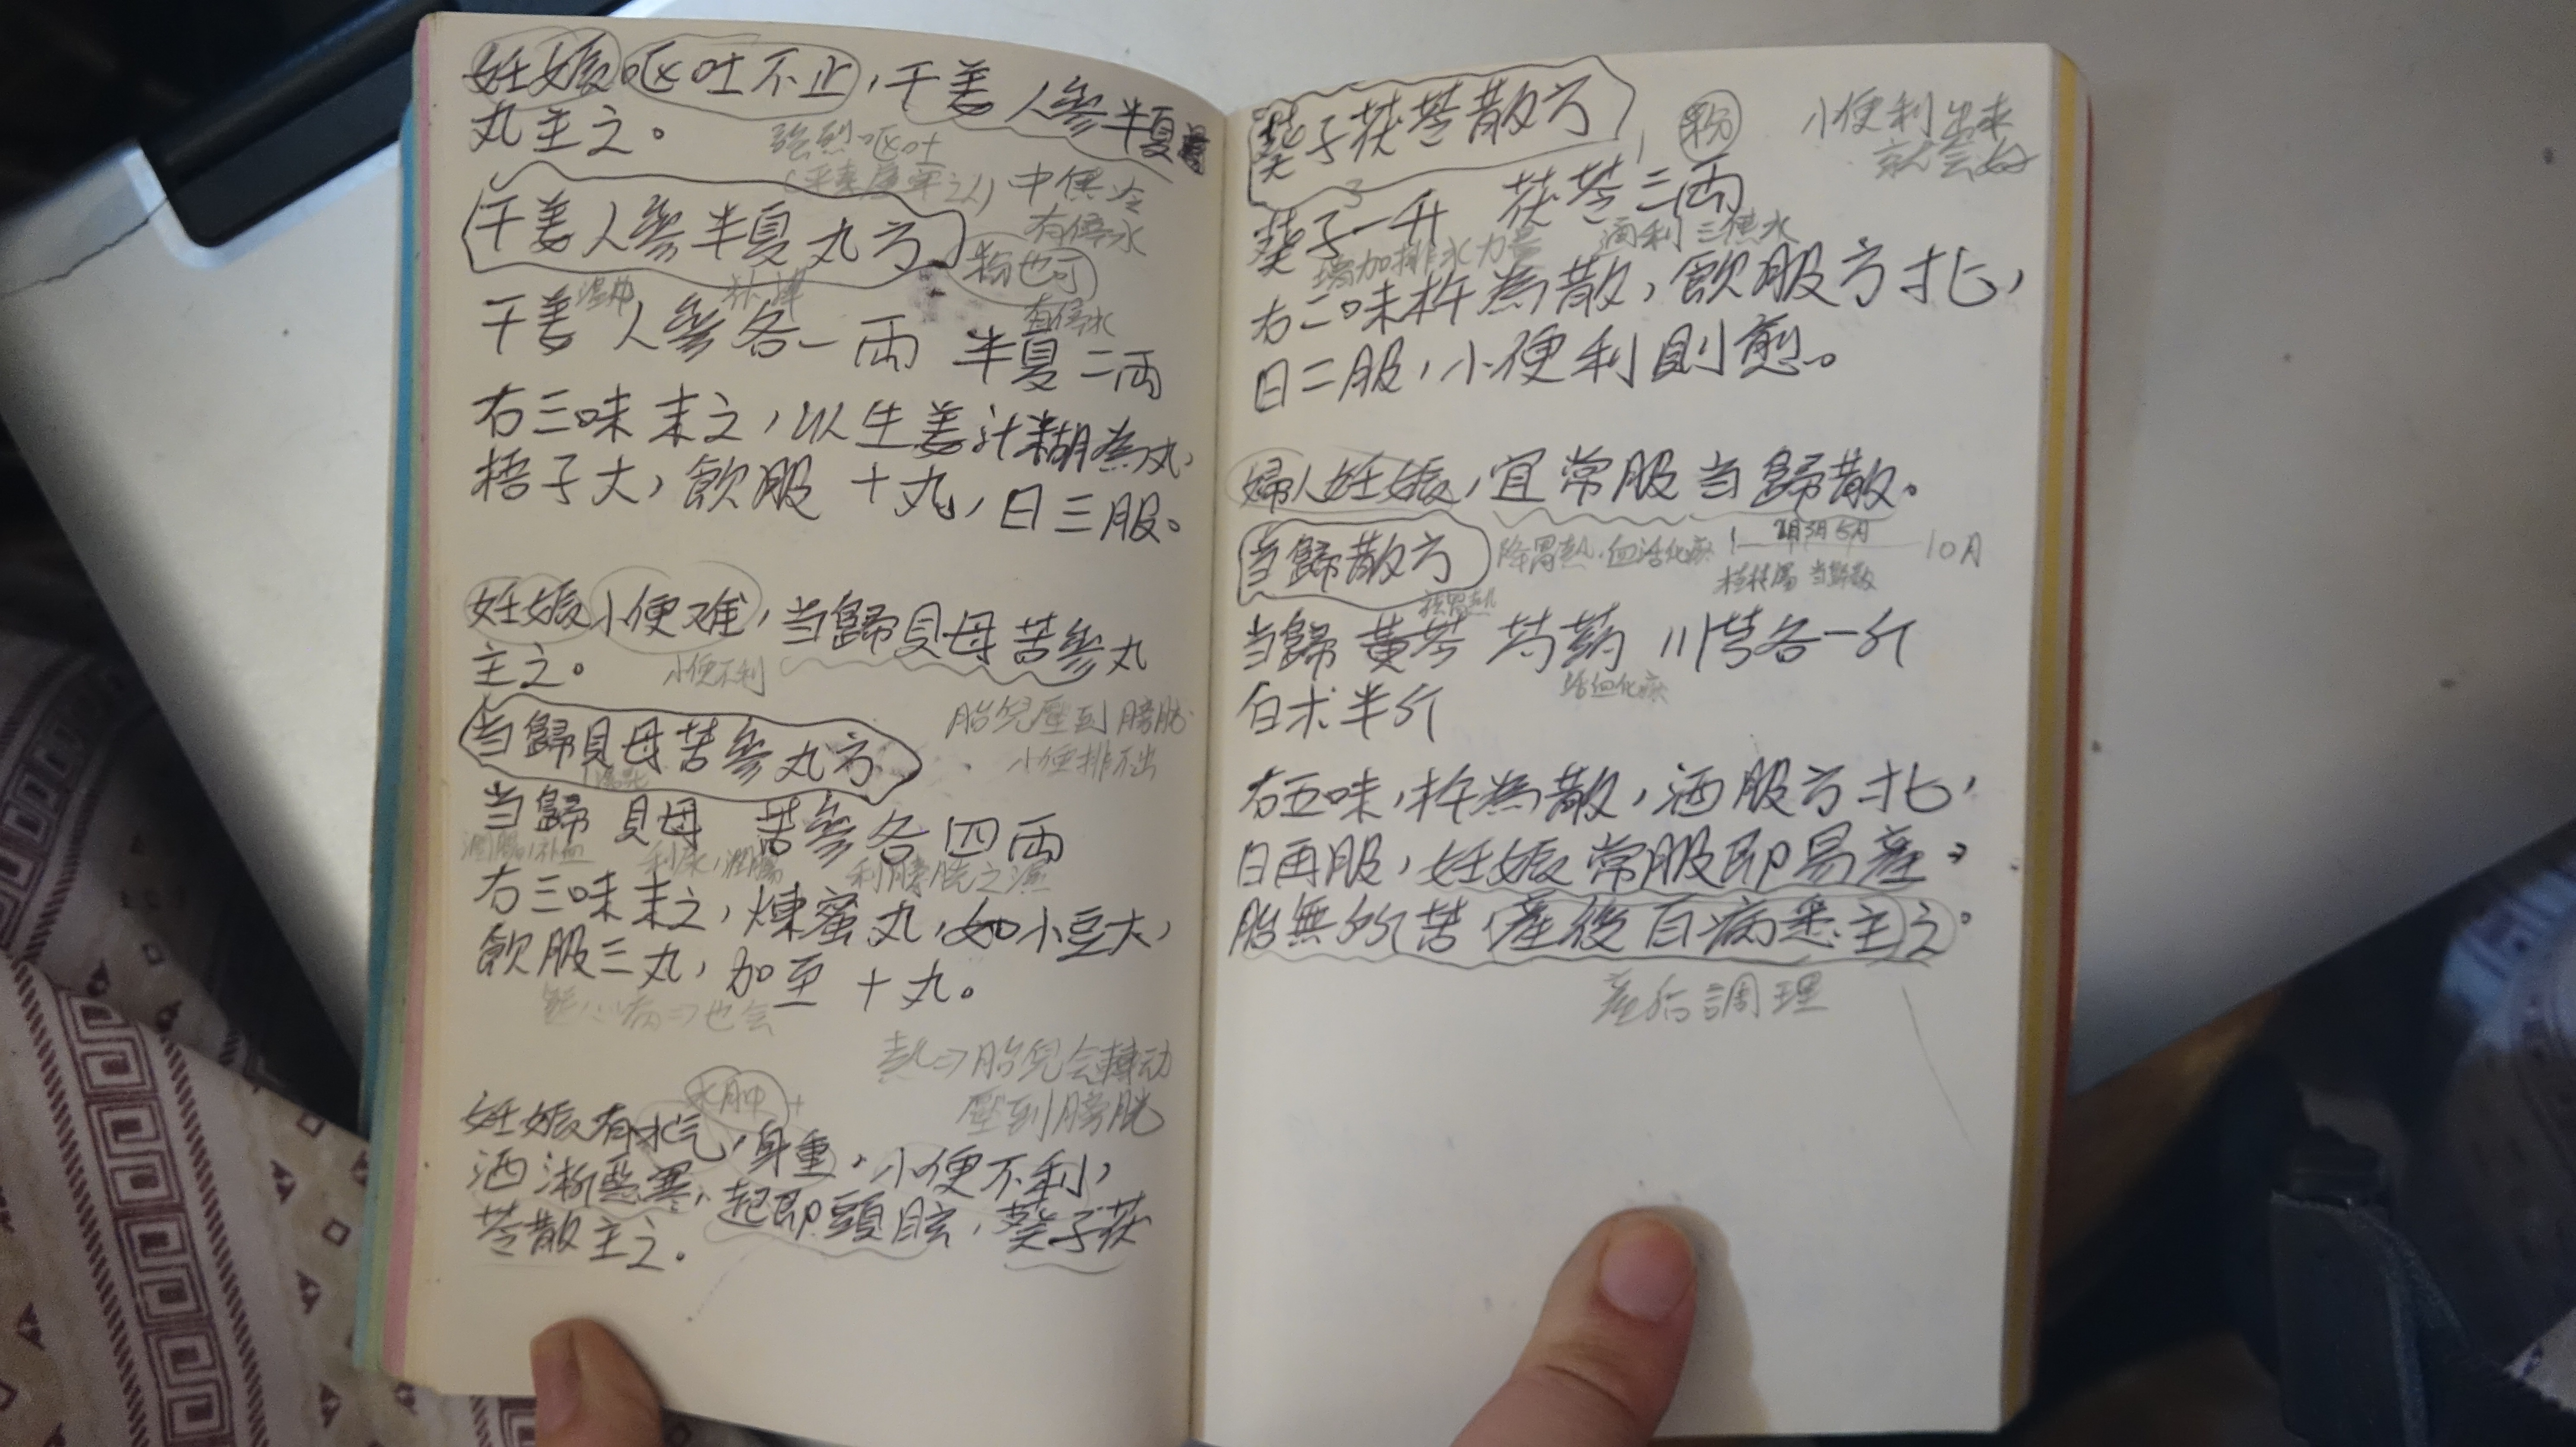 妊娠呕吐不止，干姜人參半夏
丸主之。
強烈呕吐
中焦冷
有停水
干姜人參半夏丸方
粉也可
温中
补津
有停水
干姜 人參各一両 半夏二両
右三味末之，以生姜汁糊為丸，
梧子大，飲服 十丸，日三服。
妊娠小便难，当歸貝母苦參丸
主之。
小便不利
胎兒壓到膀胱
小便排不出
当歸貝母苦參丸方
当歸 貝母 苦參各四両
潤腸，补血
利尿，潤腸
利膀胱之濕
右三味末之，煉蜜丸，如小豆大，
飲服三丸，加至 十丸。
熱⇒胎兒会轉动
壓到膀胱
水肿
妊娠有水气，身重，小便不利，
洒淅惡寒，起即頭眩，葵子茯
苓散主之。
葵子茯苓散方
粉
小便利出来
就会好
葵子一升 茯苓三両
增加排水力量
通利三焦水
右二味杵為散，飲服方北，
日二服，小便利則愈。
婦人妊娠，宜常服当歸散。
当歸散方
降胃熱．血活化瘀
10月
桂枝湯 当歸散
祛胃熱
当歸 黃芩 芍药 川芎各一斤
活血化瘀
白朮半斤
右五味，杵為散，酒服方北，
日再服，妊娠常服即易產，
胎無所苦，產後百病悉主之。
產后調理